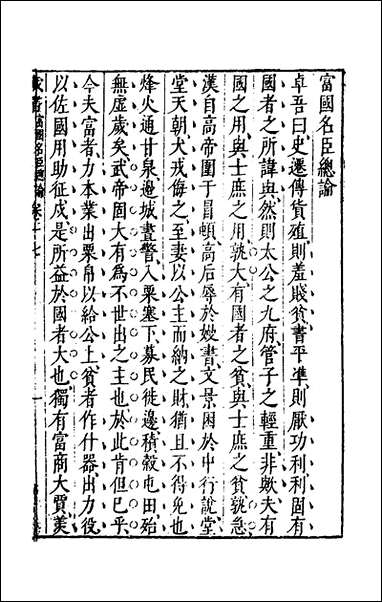 富國名臣總論
卓吾曰史遷傳貨殖則羞賤貧書平準則厭功利利固有
國者之所諱與然則太公之九府管子之輕重非歟夫有
國之用與士庶之用孰大有國者之貧與士庶之貧孰急
漢自高帝圍于冒頓高后辱於嫚書文景困於中行說堂
堂天朝犬戎侮之至妻以公主而納之財猶且不得免也
烽火通甘泉邊城晝警入粟塞下募民徙邊積榖屯田殆
無虛歲矣武帝固大有為不世出之主也於此肯但已乎
今夫富者力本業出粟帛以給公上貧者作什器出力役
以佐國用助征戍是所益於國者大也獨有富商大賈羨
藏書 富國名臣總論 卷十七 一